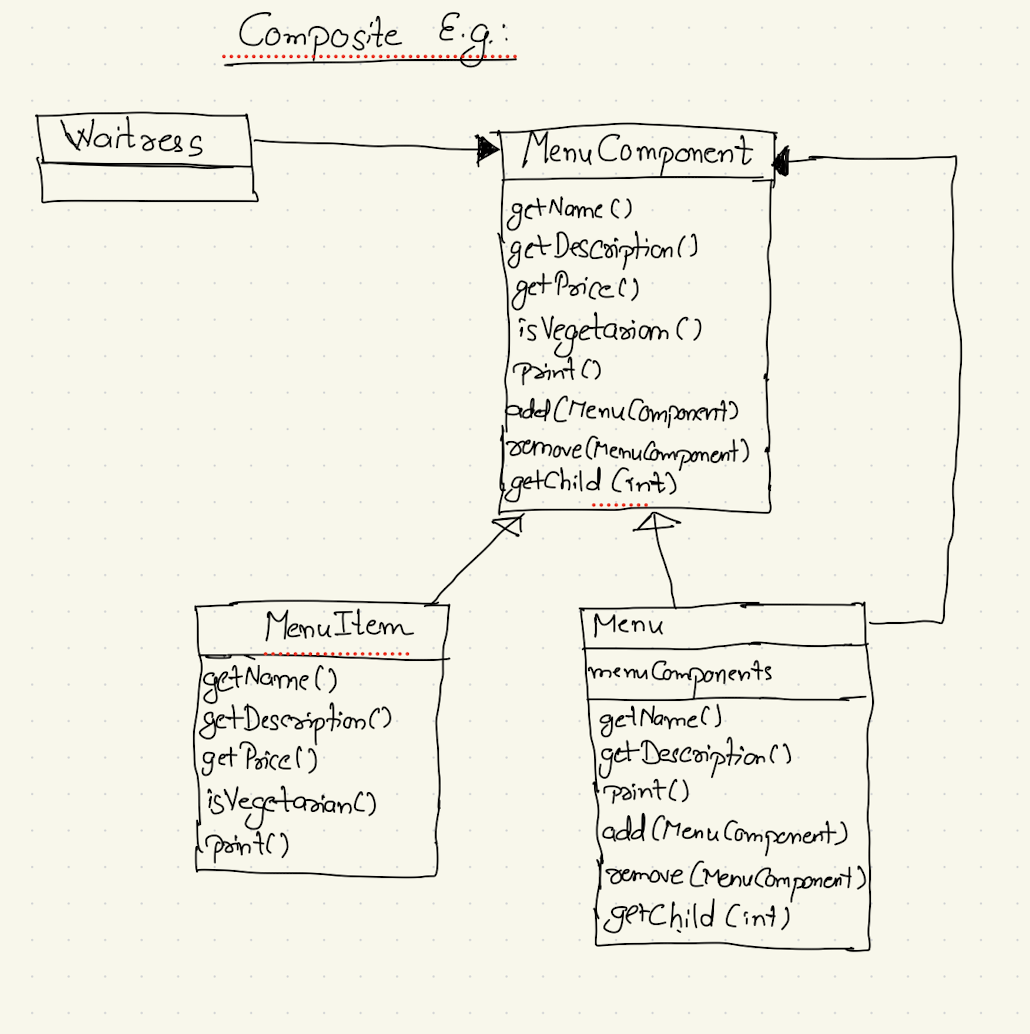 Composite E.g.:
Waitress
MenuComponent
getName()
getDescription()
getPrice()
isVegetarian()
print()
add(MenuComponent)
remove(MenuComponent)
getChild(int)
MenuItem
getName()
getDescription()
getPrice()
isVegetarian()
print()
Menu
menuComponents
getName()
getDescription()
print()
add(MenuComponent)
remove(MenuComponent)
getChild(int)